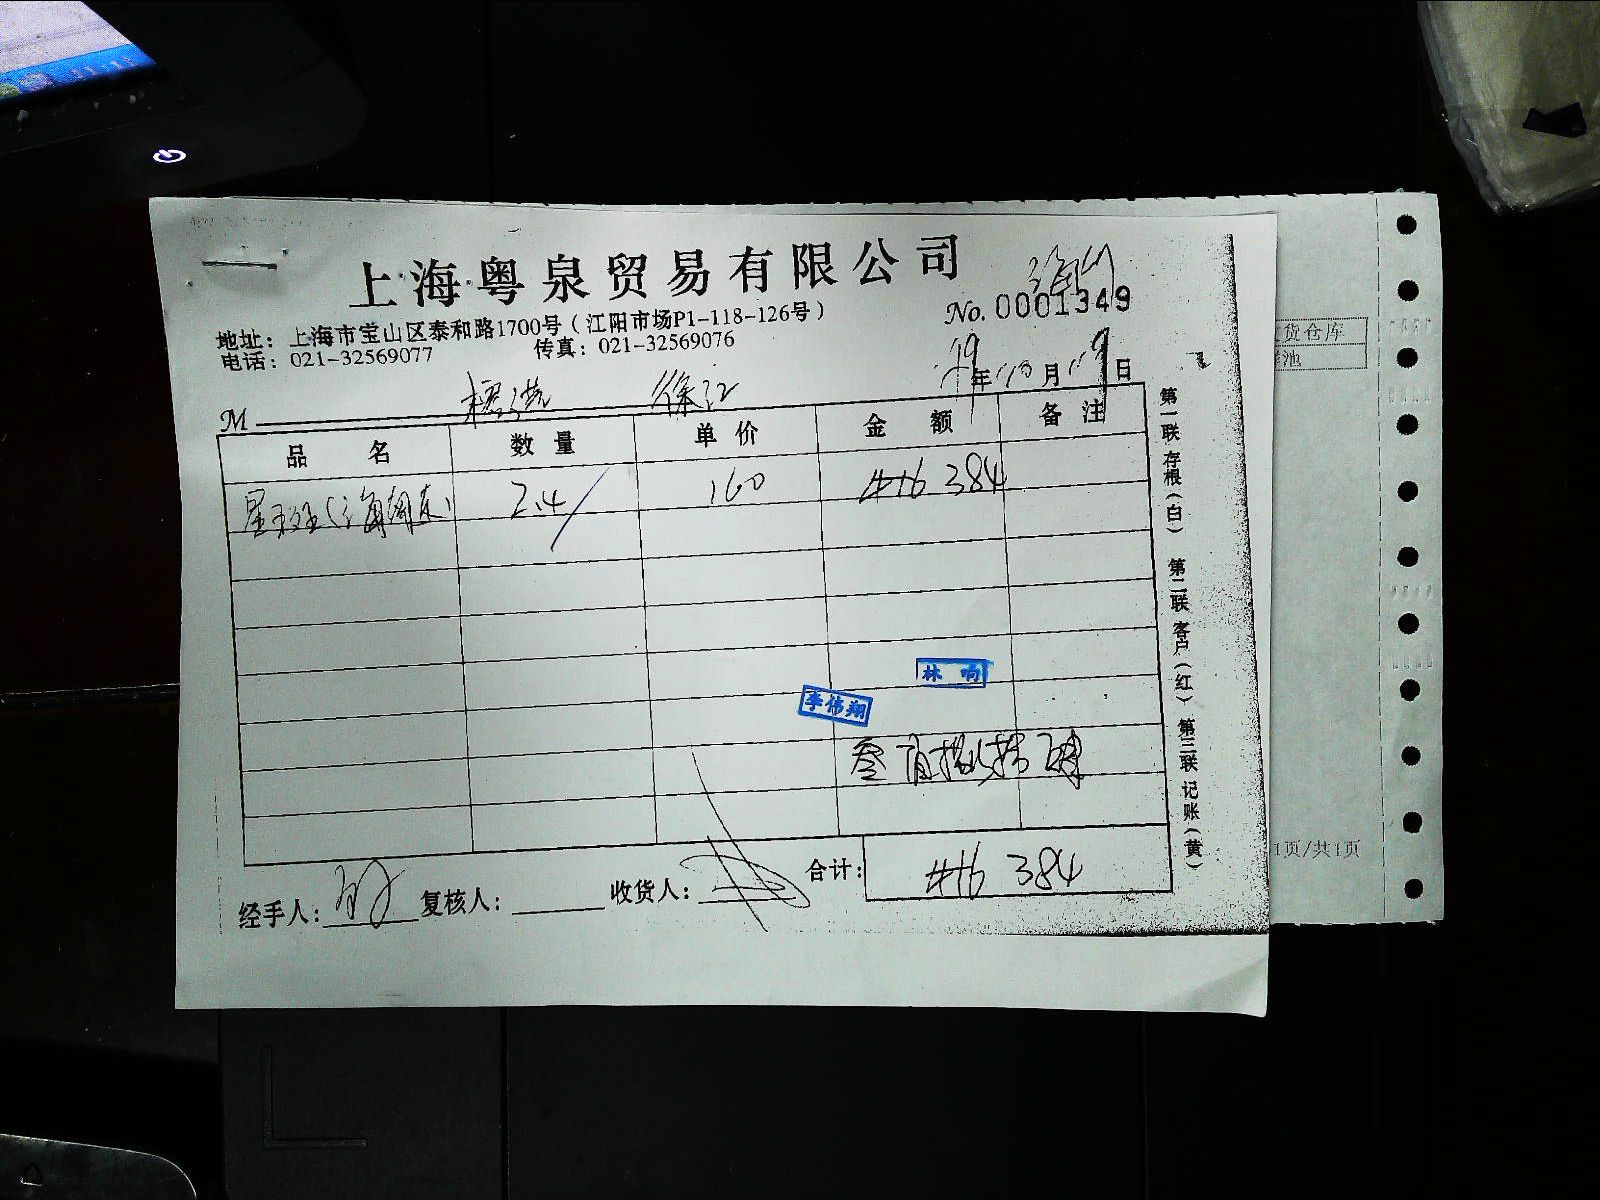 上海粤泉贸易有限公司
No. 0001349
地址：上海市宝山区泰和路1700号（江阳市场P1-118-126号）
电话：021-32569077 传真：021-32569076
19年10月19日
M 徐汇
品名 数量 单价 金额 备注
星斑 2.4 160 #16 384
林响
李伟翔
叁佰捌拾肆
合计： #16 384
经手人： 复核人： 收货人：
第一联 存根（白） 第二联 客户（红） 第三联 记账（黄）
货仓库
池
1页/共1页